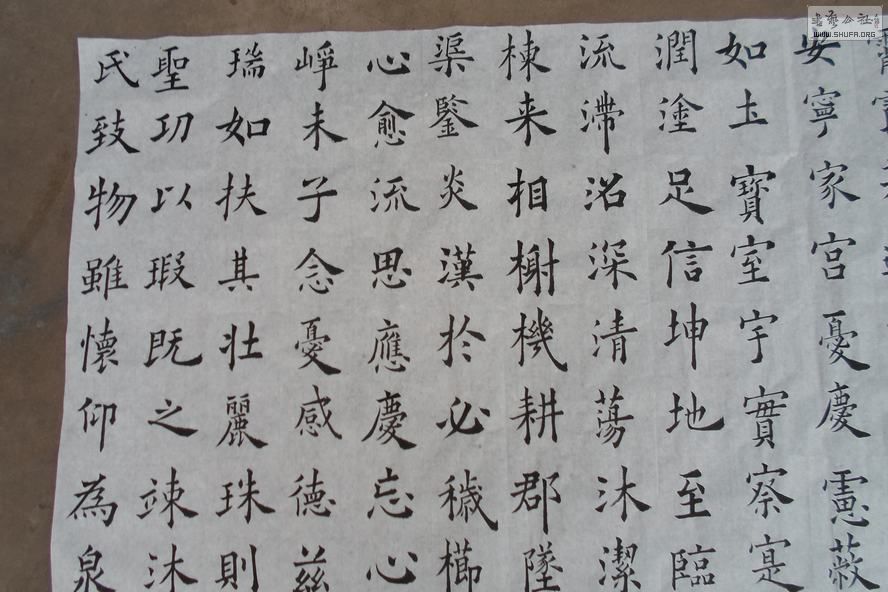 书艺公社
WWW.SHUFA.ORG
安寧家宮憂慶憲蔽
如土寶室宇實察寔
潤塗足信坤地至臨
流滯沼深清蕩沐潔
棟来相榭機耕郡墜
渠鑒炎漢於必穢櫛
心愈流思應慶忘心
崢未子念憂感德茲
瑞如扶其壯麗珠則
聖功以瑕既之竦沐
氏致物雖懷仰為泉